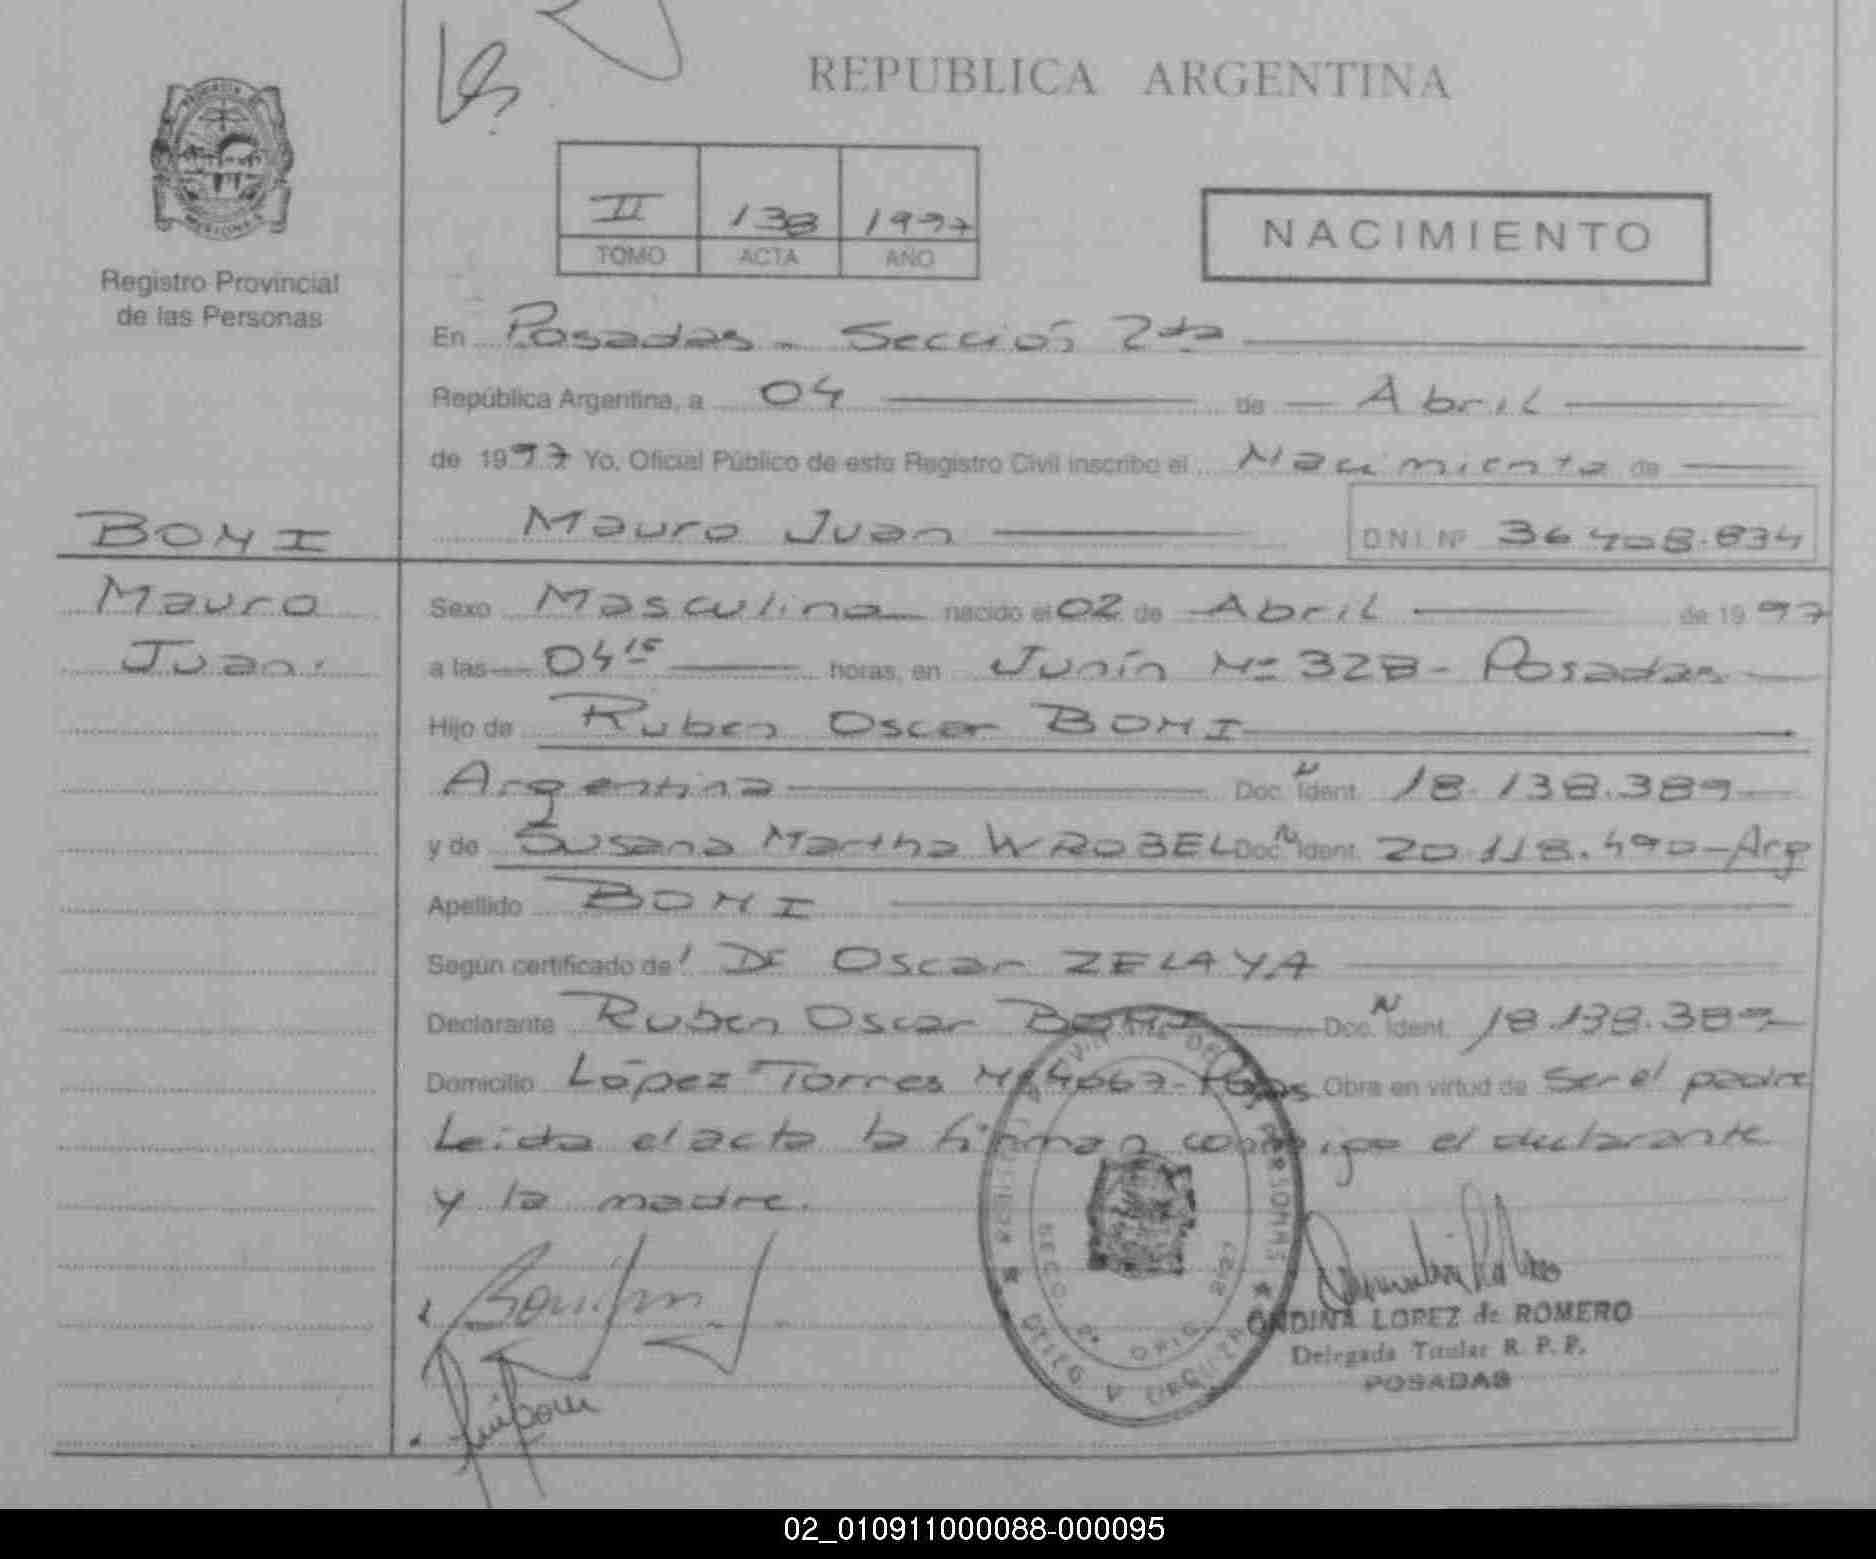 REPUBLICA ARGENTINA
II 138 1997
TOMO ACTA AÑO
NACIMIENTO
Registro Provincial
de las Personas
En Posadas - Sección 2da
República Argentina, a 04 de Abril
de 1997 Yo, Oficial Público de este Registro Civil inscribo el Nacimiento de
Mauro Juan D.N.I. Nº 36.408.834
BONI
Mauro
Juan.
Sexo Masculino nacido el 02 de Abril de 1997
a las 04 15 horas, en Junín Nº 328 - Posadas
Hijo de Ruben Oscar BONI
Argentina Doc. N Ident. 18.138.389
y de Susana Martha WROBEL Doc. N Ident. 20.118.490 - Arg
Apellido BONI
Según certificado de Dr Oscar ZELAYA
Declarante Ruben Oscar BONI Doc. N Ident. 18.138.389
Domicilio López Torres Nº 4067 - Pdas Obra en virtud de ser el padre
Leída el acta la firman conmigo el declarante
y la madre.
ONDINA LOPEZ de ROMERO
Delegada Titular R. P. P.
POSADAS
02_010911000088-000095